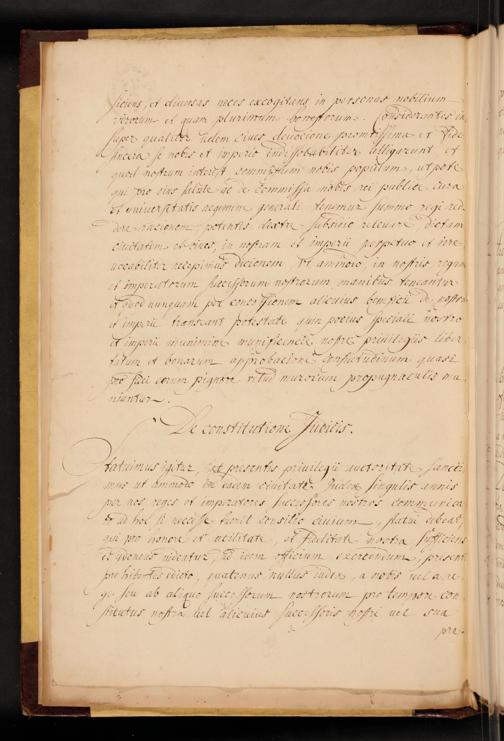 ficiens, et diversas neces excogitans, in personas nobilium
virorum et quam plurimum honestorum. Considerantes in
super qualiter iidem cives devocione promtissima et fide
sincera se nobis et imperio indissolubiliter alligarunt, et
quod nostrum interest commissum nobis populum, ut pote
qui pro eius salute et de commissa nobis rei publice cura
et universitatis regimine generali tenemur summo regi red
dere racionem, potentis dextre subsidio relevare dictam
civitatem et cives, in nostram et imperii perpetuo et irre
vocabiliter recepimus dicionem, ut ammodo, in nostris regum
et imperatorum successorum nostrorum manibus teneantur
et quod nunquam per concessionem alicuius beneficii de nostra
et imperii transeant potestate quin pocius speciali nostro
et imperii munimine munificencie nostre privilegiis liber
tatum et bonarum approbacione consuetudinum quasi
pro fidei eorum pignore velud murorum propugnaculis mu
niantur.
De constitutione Judicis.
Statuimus igitur, ut presentis privilegii auctoritate sancci
mus ut ammodo in eadem civitate Judex singulis annis
per nos reges et imperatores successores nostros communica
to ad hoc si necesse fuerit consilio civium, statui debeat,
qui pro honore et utilitate, et fidelitate nostra sufficiens
et ydoneus videatur, ad idem officium exercendum, presenti
prohibentes edicto, quatenus nullus iudex, a nobis vel a re
ge seu ab aliquo successorum nostrorum pro tempore con
stitutus nostra vel alicuius successoris nostri vel sua
pre-